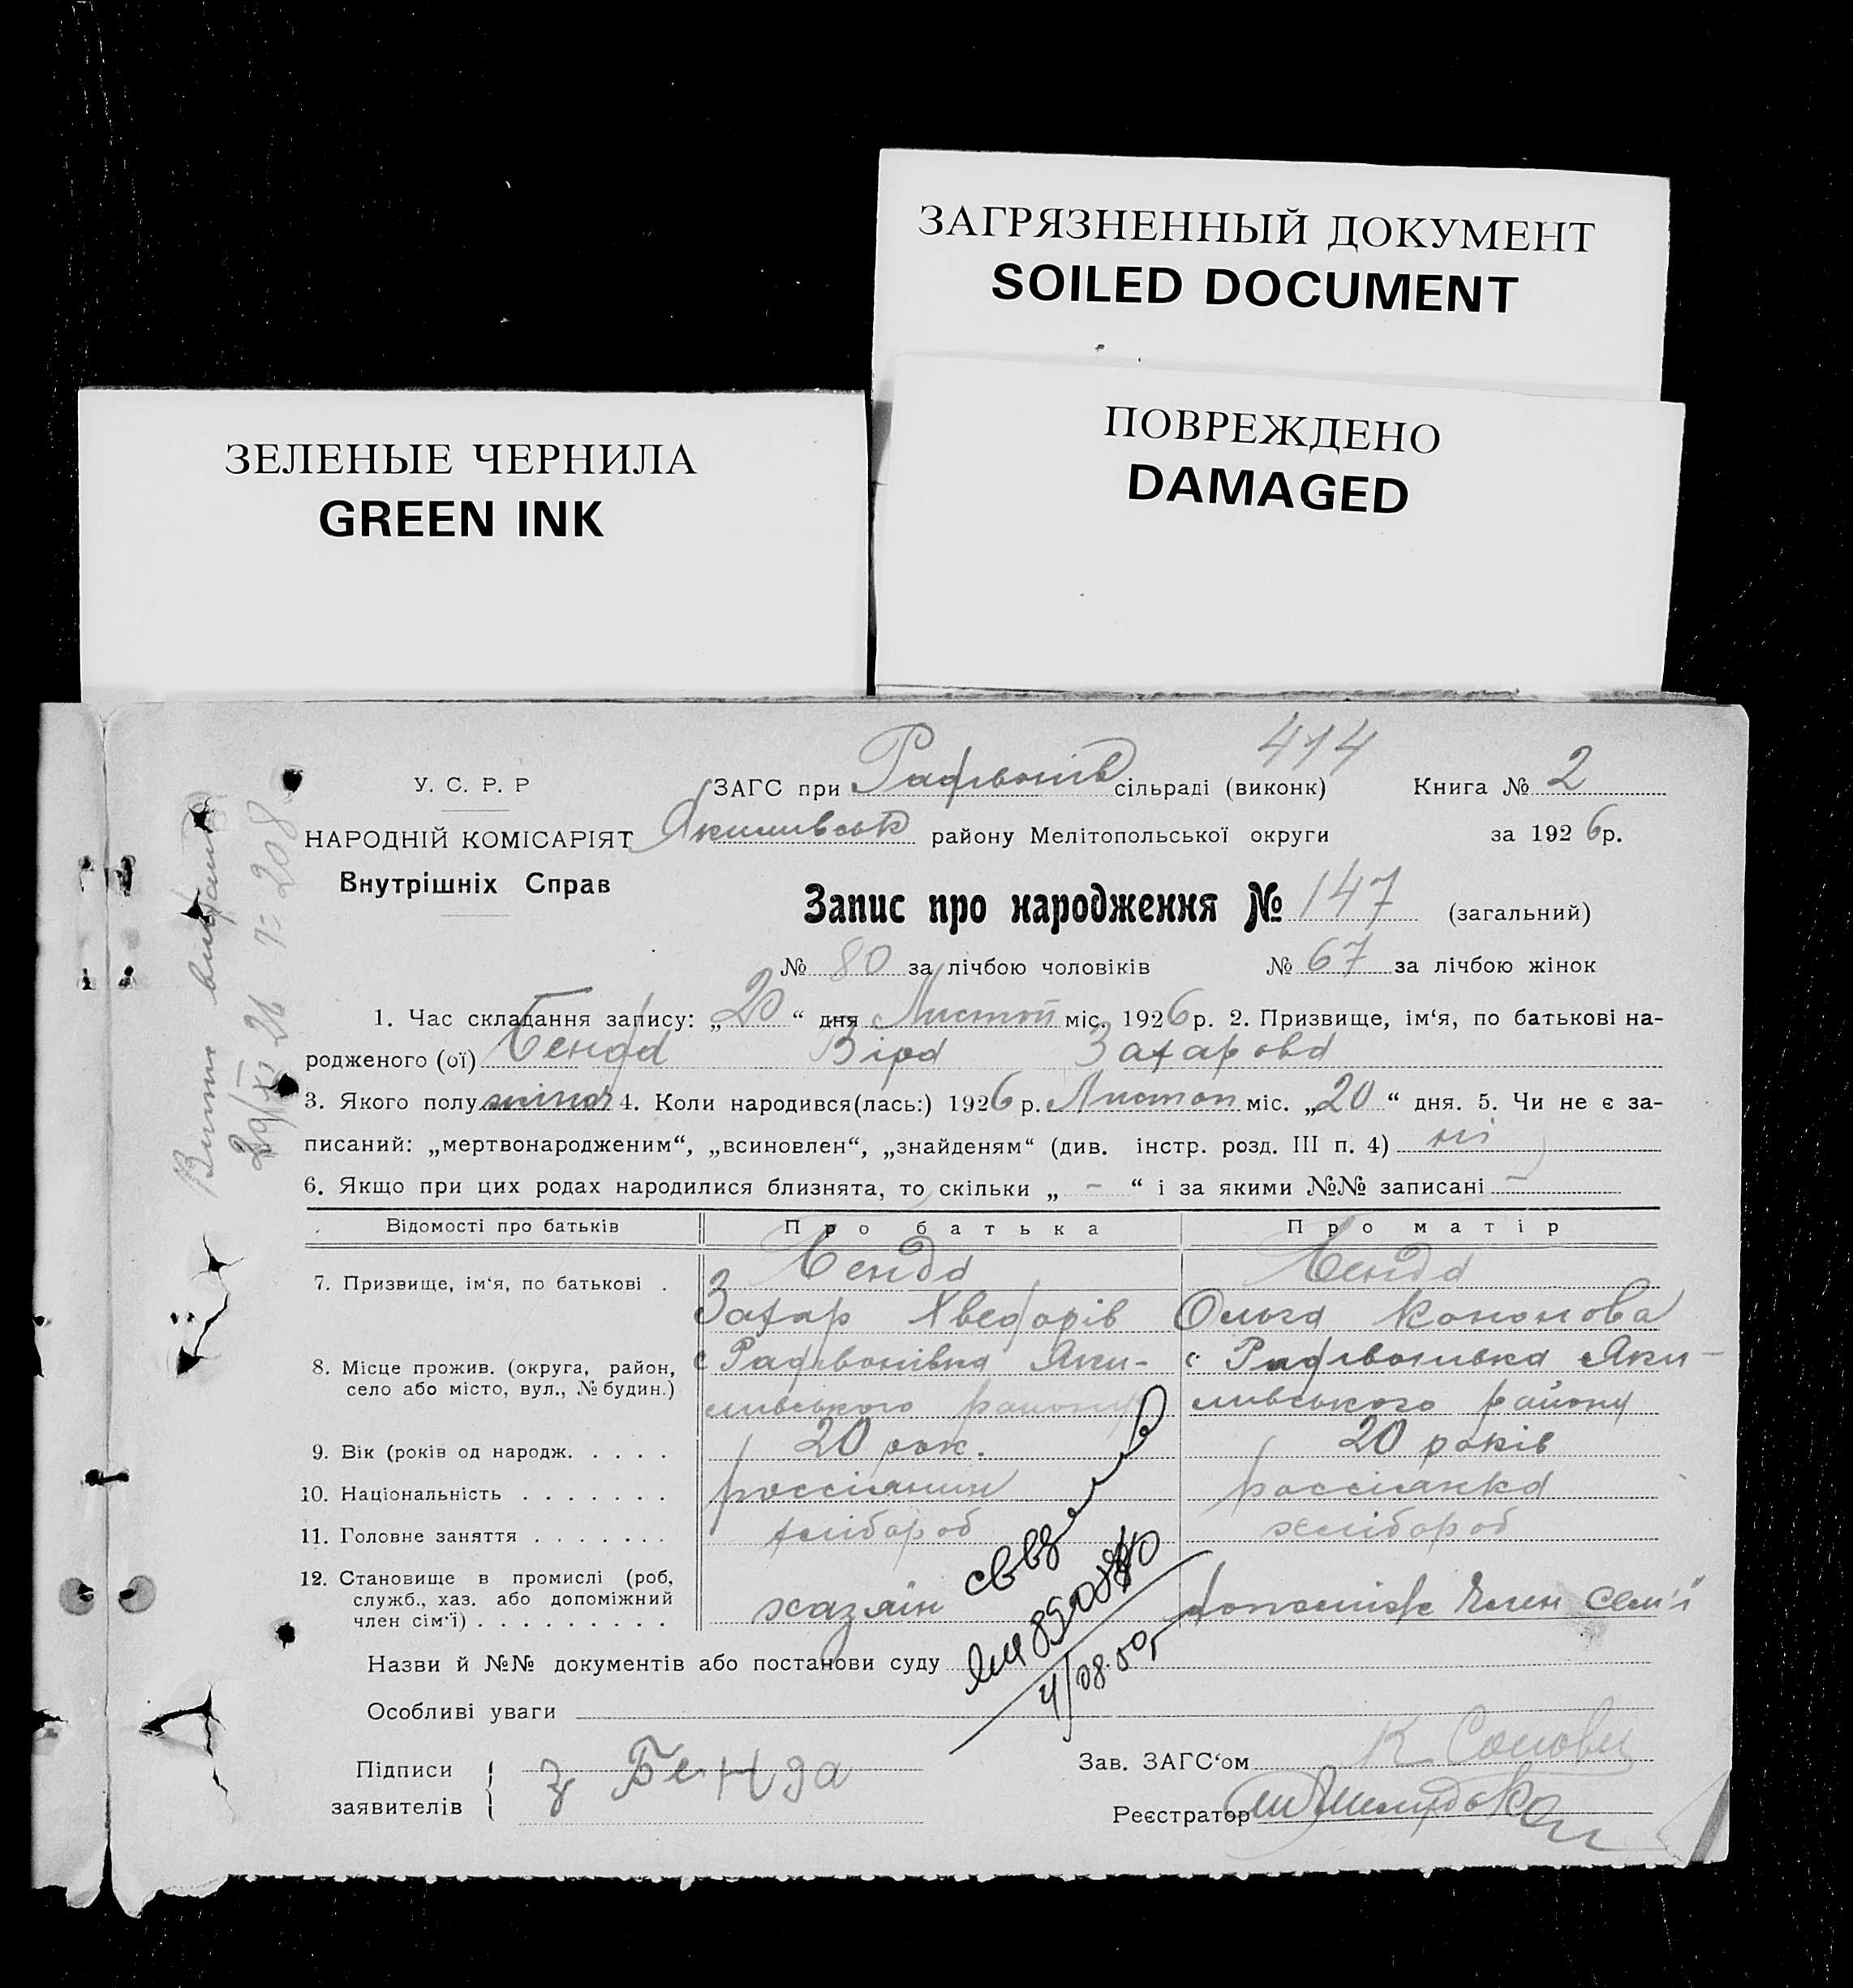 ЗАГРЯЗНЕННЫЙ ДОКУМЕНТ
SOILED DOCUMENT
ПОВРЕЖДЕНО
DAMAGED
ЗЕЛЕНЫЕ ЧЕРНИЛА
GREEN INK
414
У. С. Р. Р
ЗАГС при сільраді (виконк) Книга № 2
НАРОДНІЙ КОМІСАРІЯТ
Якимивськ району Мелітопольської округи за 1926р.
Внутрішніх Справ
Запис про народження № 147 (загальний)
№ 80 за лічбою чоловіків № 67 за лічбою жінок
1. Час складання запису: „20“ дня Листоп міс. 1926р. 2. Призвище, ім‘я, по батькові на-
родженого (ої) Бенда Віра Захарова
3. Якого полу жіноч 4. Коли народився(лась:) 1926р. Листоп міс. „20“ дня. 5. Чи не є за-
писаний: „мертвонародженим“, „всиновлен“, „знайденям“ (див. інстр. розд. III п. 4) ні
6. Якщо при цих родах народилися близнята, то скільки „ - “ і за якими №№ записані -
Відомості про батьків Про батька Про матір
Бенда Бенда
7. Призвище, ім‘я, по батькові .
Захар Хведорів Ольга Кононова
8. Місце прожив. (округа, район, с Яки- с. Яки-
село або місто, вул., № будин.)
мивського району мивського району
9. Вік (років од народж. . . . . 20 рок. 20 років
10. Національність . . . . . . . россіянин россіянка
11. Головне заняття . . . . . . . хлібороб хлібороб
12. Становище в промислі (роб,
служб., хаз. або допоміжний
член сім‘ї) . . . . . . . . . хазяін допоміж член семʼї
Назви й №№ документів або постанови суду
Особливі уваги
Підписи З Бенда
заявителів
Зав. ЗАГС‘ом К
Реєстратор
29/XI 26 208